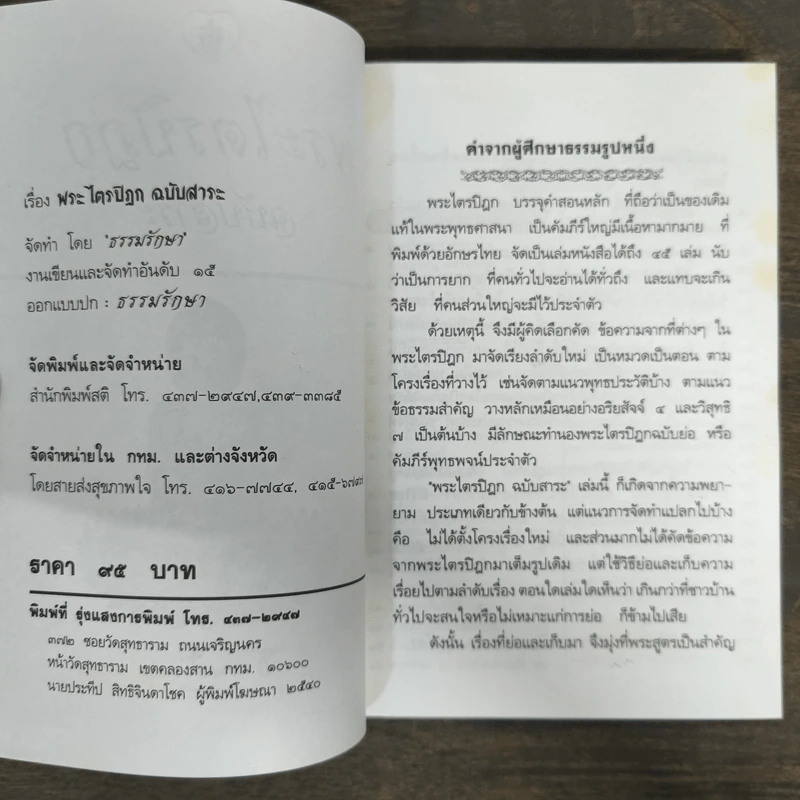 เรื่อง พระไตรปิฎก ฉบับสาระ
จัดทำ โดย "ธรรมรักษา"
งานเขียนและจัดทำอันดับ ๑๕
ออกแบบปก : ธรรมรักษา
จัดพิมพ์และจัดจำหน่าย
สำนักพิมพ์สติ โทร. ๔๓๗-๒๙๔๗,๔๓๙-๓๓๘๕
จัดจำหน่ายใน กทม. และต่างจังหวัด
โดยสายส่งสุขภาพใจ โทร. ๔๑๖-๗๗๔๔,
ราคา ๙๕ บาท
พิมพ์ที่ รุ่งแสงการพิมพ์ โทร. ๔๓๗-๒๙๔๗
๓๗๒ ซอยวัดสุทธาราม ถนนเจริญนคร
หน้าวัดสุทธาราม เขตคลองสาน กทม. ๑๐๖๐๐
นายประทีป สิทธิจินดาโชค ผู้พิมพ์โฆษณา ๒๕๔๐
คำจากผู้ศึกษาธรรมรูปหนึ่ง
พระไตรปิฎก บรรจุคำสอนหลัก ที่ถือว่าเป็นของเดิม
แท้ในพระพุทธศาสนา เป็นคัมภีร์ใหญ่มีเนื้อหามากมาย ที่
พิมพ์ด้วยอักษรไทย จัดเป็นเล่มหนังสือได้ถึง ๔๕ เล่ม นับ
ว่าเป็นการยาก ที่คนทั่วไปจะอ่านได้ทั่วถึง และแทบจะเกิน
วิสัย ที่คนส่วนใหญ่จะมีไว้ประจำตัว
ด้วยเหตุนี้ จึงมีผู้คิดเลือกคัด ข้อความจากที่ต่างๆ ใน
พระไตรปิฎก มาจัดเรียงลำดับใหม่ เป็นหมวดเป็นตอน ตาม
โครงเรื่องที่วางไว้ เช่นจัดตามแนวพุทธประวัติบ้าง ตามแนว
ข้อธรรมสำคัญ วางหลักเหมือนอย่างอริยสัจจ์ ๔ และวิสุทธิ
๗ เป็นต้นบ้าง มีลักษณะทำนองพระไตรปิฎกฉบับย่อ หรือ
คัมภีร์พุทธพจน์ประจำตัว
"พระไตรปิฎก ฉบับสาระ" เล่มนี้ ก็เกิดจากความพยา-
ยาม ประเภทเดียวกับข้างต้น แต่แนวการจัดทำแปลกไปบ้าง
คือ ไม่ได้ตั้งโครงเรื่องใหม่ และส่วนมากไม่ได้คัดข้อความ
จากพระไตรปิฎกมาเต็มรูปเดิม แต่ใช้วิธีย่อและเก็บความ
เรื่อยไปตามลำดับเรื่อง ตอนใดเล่มใดเห็นว่า เกินกว่าที่ชาวบ้าน
ทั่วไปจะสนใจหรือไม่เหมาะแก่การย่อ ก็ข้ามไปเสีย
ดังนั้น เรื่องที่ย่อและเก็บมา จึงมุ่งที่พระสูตรเป็นสำคัญ